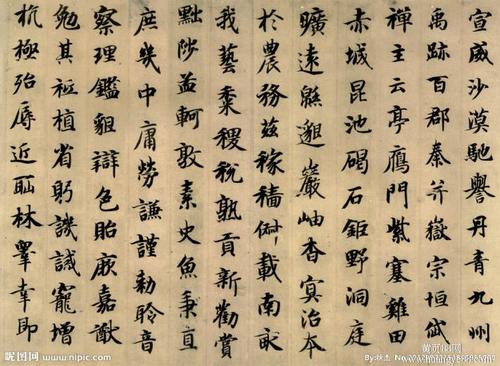 宣威沙漠馳譽丹青九州
禹跡百郡秦并嶽宗恒岱
禪主云亭鴈門紫塞雞田
赤城昆池碣石鉅野洞庭
曠遠緜邈巖岫杳冥治本
於農務茲稼穡俶載南畝
我藝黍稷稅熟貢新勸賞
黜陟孟軻敦素史魚秉直
庶幾中庸勞謙謹勑聆音
察理鑑貌辯色貽厥嘉猷
勉其祗植省躬譏誡寵增
抗極殆辱近恥林睪幸即
昵图网 www.nipic.com